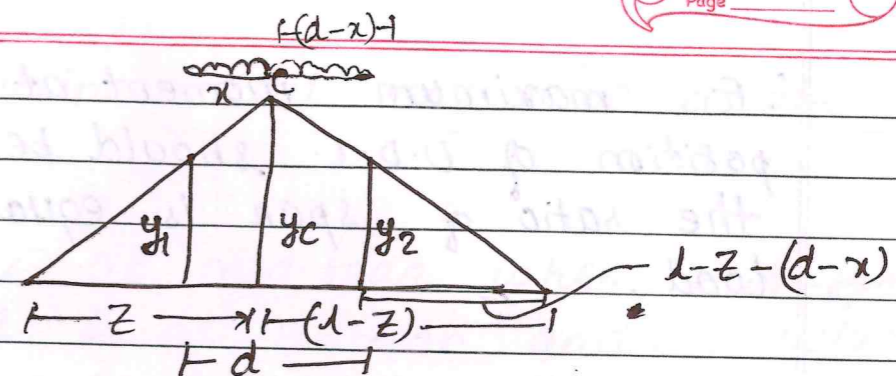 Page
(d-x)
x
C
y1
yc
y2
l-z-(d-x)
z
(l-z)
d